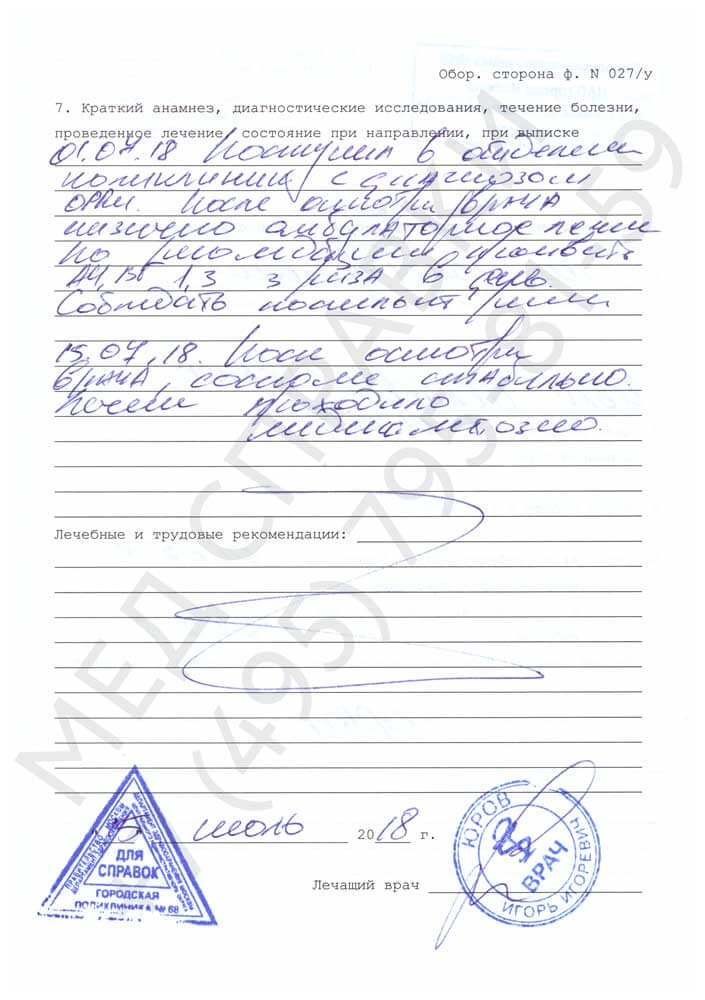 Обор. сторона ф. N 027/у
7. Краткий анамнез, диагностические исследования, течение болезни,
проведенное лечение, состояние при направлении, при выписке
01.07.18 Поступил в отделение
поликлиники с диагнозом
ОРВИ. После осмотра врача
назначено амбулаторное лечение
по
1,3 3 раза в день.
Соблюдать постельный режим
15.07.18. После осмотра
врача, состояние стабильно.
Лечение проходило
медикаментозно.
Лечебные и трудовые рекомендации:
МЕД СПРАВКИ
(495) 795-81-59
ПРАВИТЕЛЬСТВО МОСКВЫ
ДЛЯ
СПРАВОК
ГОРОДСКАЯ
ПОЛИКЛИНИКА № 68
15 июль 2018 г.
Лечащий врач
ЮРОВ
ВРАЧ
ИГОРЬ ИГОРЕВИЧ